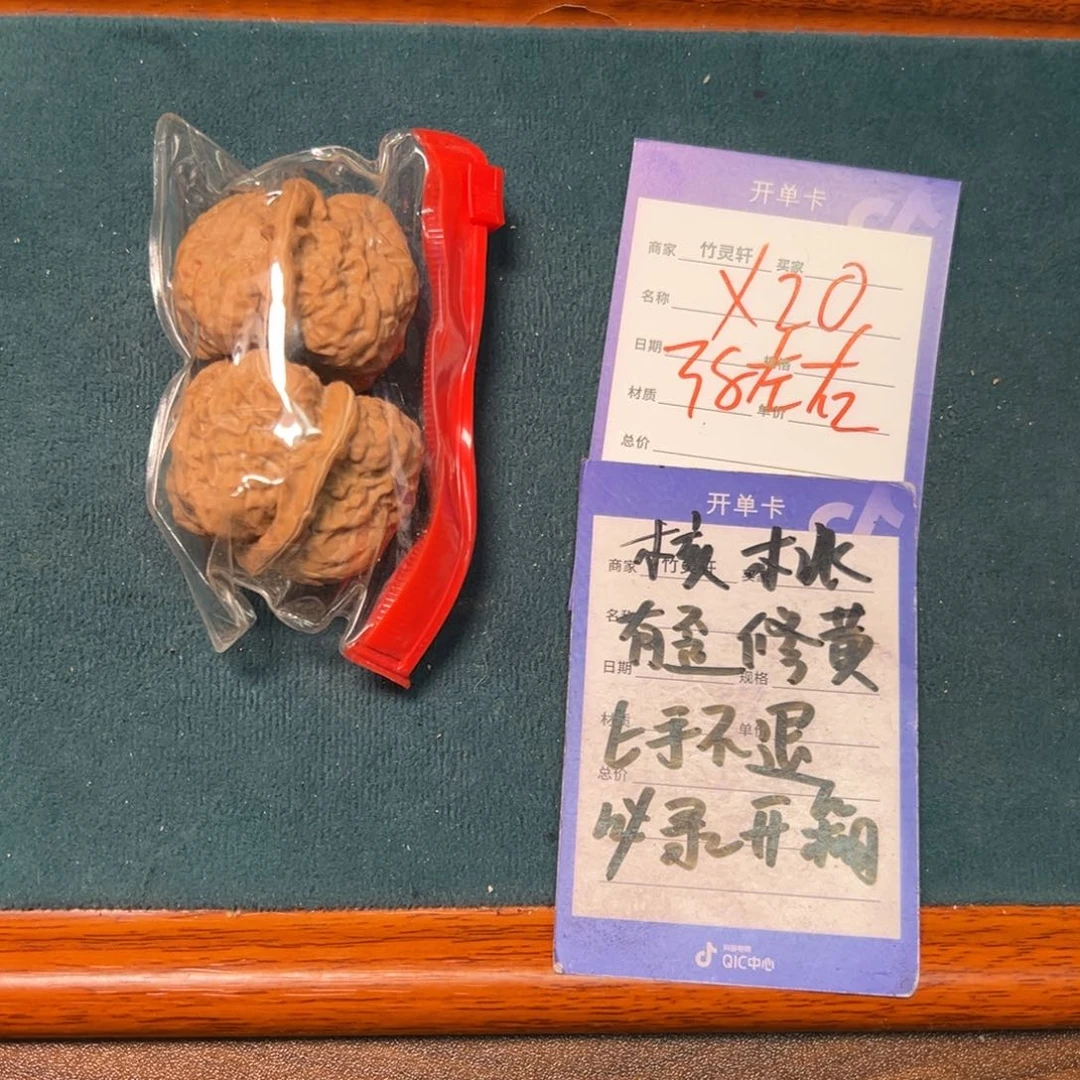 开单卡
商家 竹灵轩 买家
名称
X20
日期 规格
38左右
材质 单价
总价
开单卡
商家 竹灵轩 买家
核桃
名称
有歪修黄
日期 规格
上手不退
材质 单价
总价
必录开箱
抖音电商
QIC中心